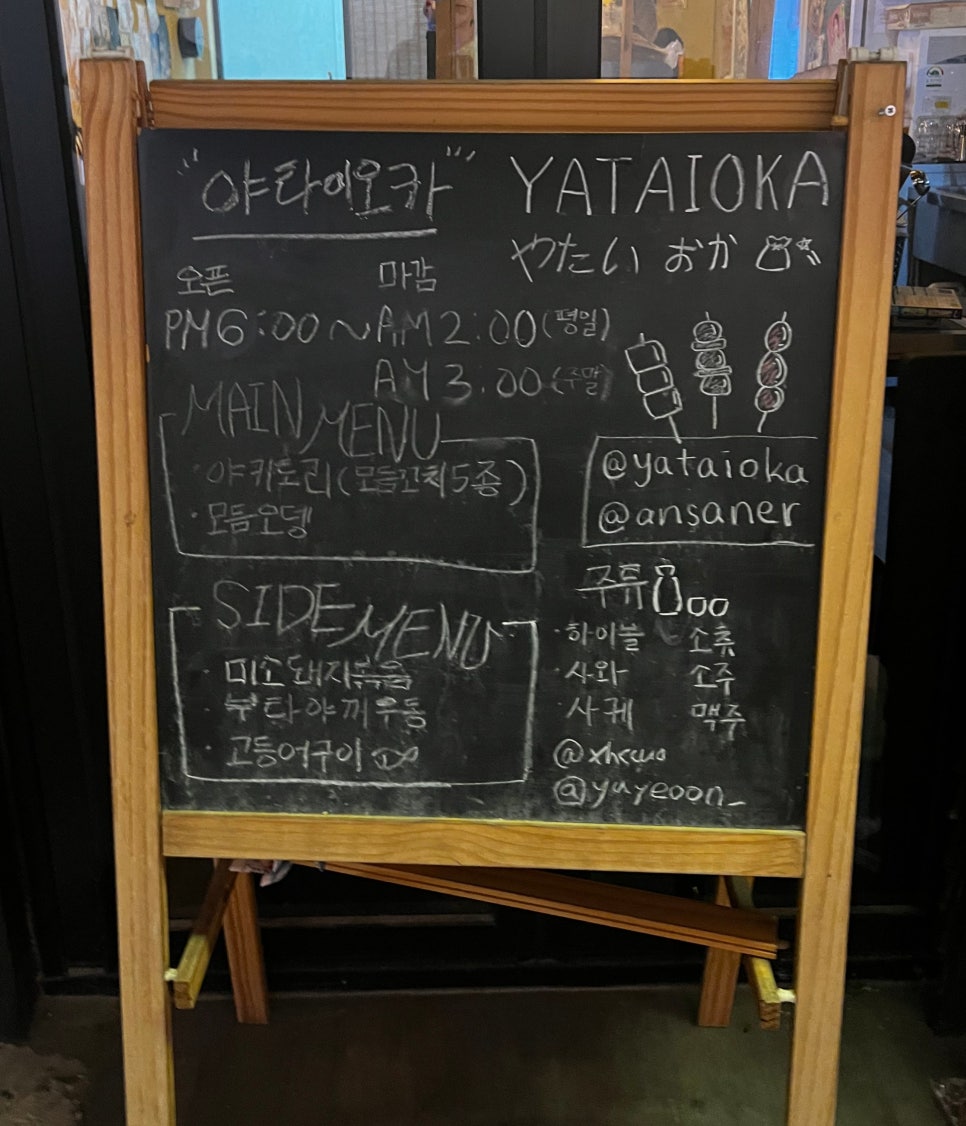 "야타이오카" YATAIOKA
やたい おか
오픈 마감
PM6:00~AM2:00(평일)
AM3.00(주말)
MAIN MENU
·야키토리(모듬꼬치5종)
·모듬오뎅
@yataioka
@ansaner
SIDE MENU
·미소돼지볶음
·부타야끼우동
·고등어구이
주류
·하이볼 소츄
·사와 소주
·사케 맥주
@yuyeoon_